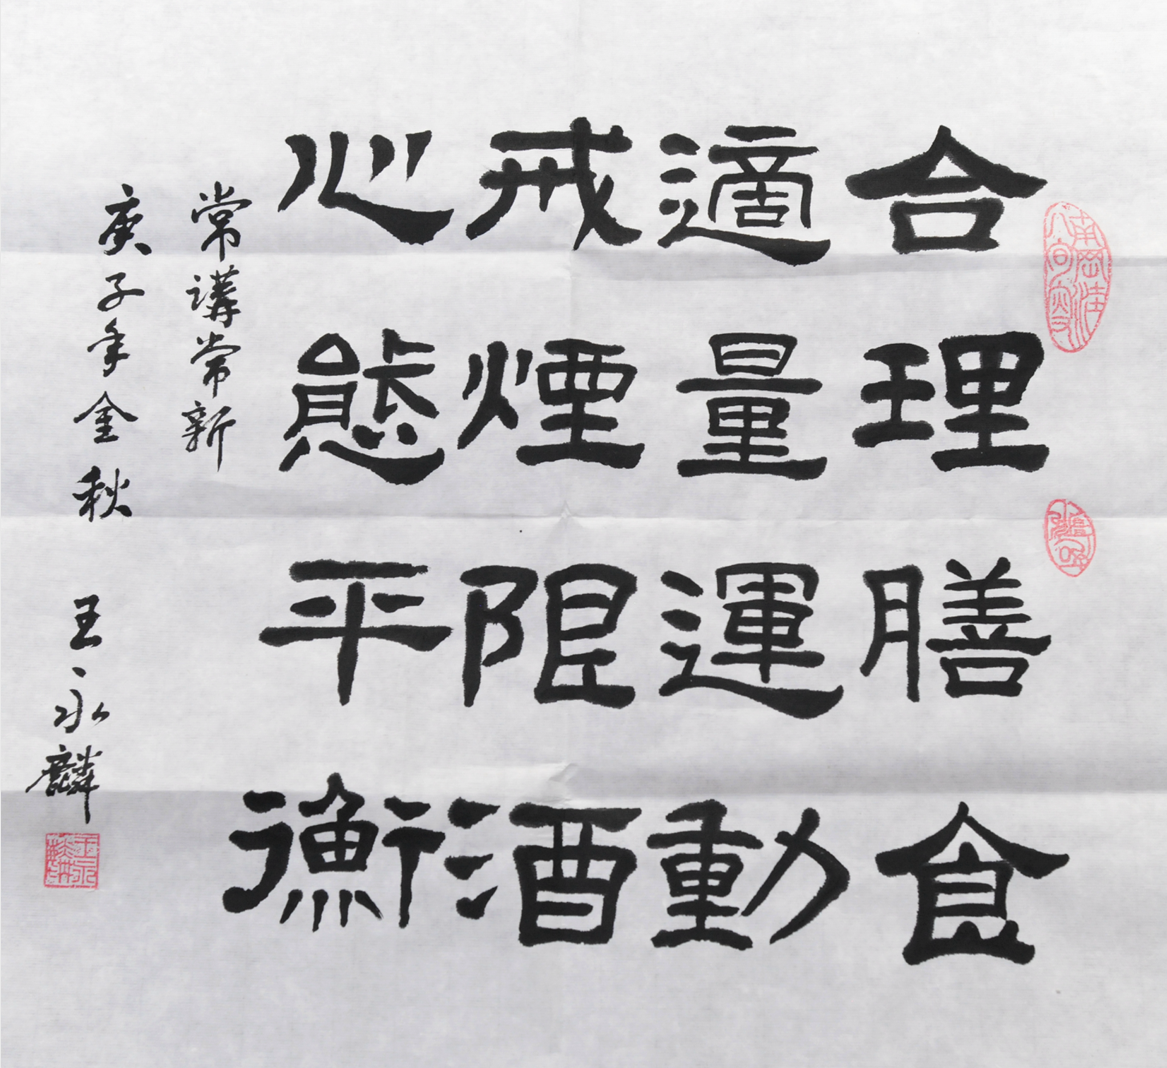 合理膳食
適量運動
戒煙限酒
心態平衡
常講常新
庚子年金秋
王永麟